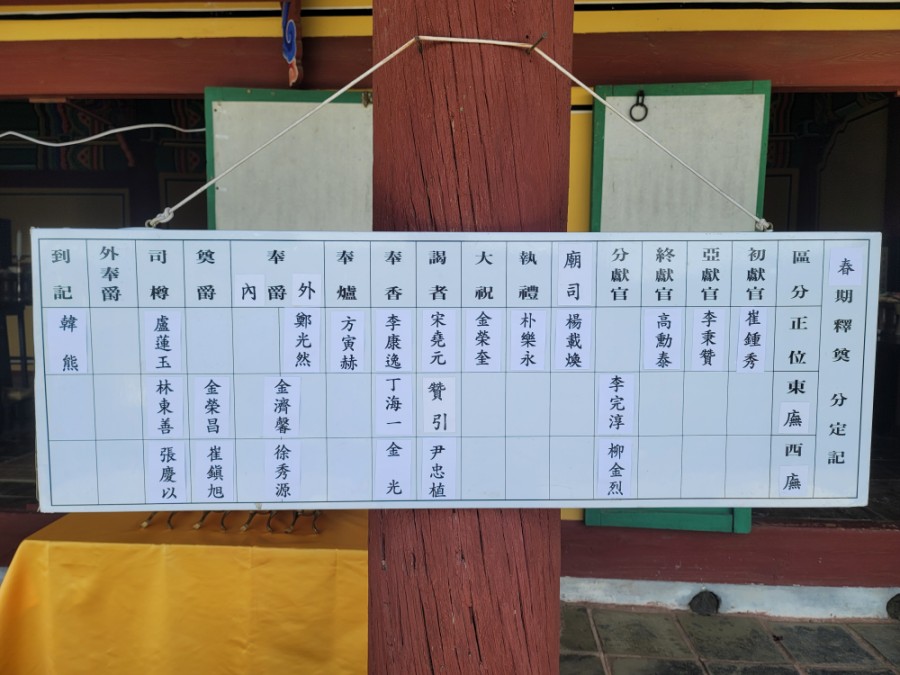 春期釋奠 分定記
區分 正位 東廡 西廡
初獻官 崔鍾秀
亞獻官 李秉贊
終獻官 高勳泰
分獻官 李完淳 柳金烈
廟司 楊載煥
執禮 朴樂永
大祝 金榮奎
謁者 宋堯元 贊引 尹忠植
奉香 李康逸 丁海一 金光
奉爐 方寅赫
奉爵 外 內 鄭光然 金濟馨 徐秀源
奠爵 金榮昌 崔鎭旭
司樽 盧蓮玉 林東善 張慶以
外奉爵
到記 韓熊